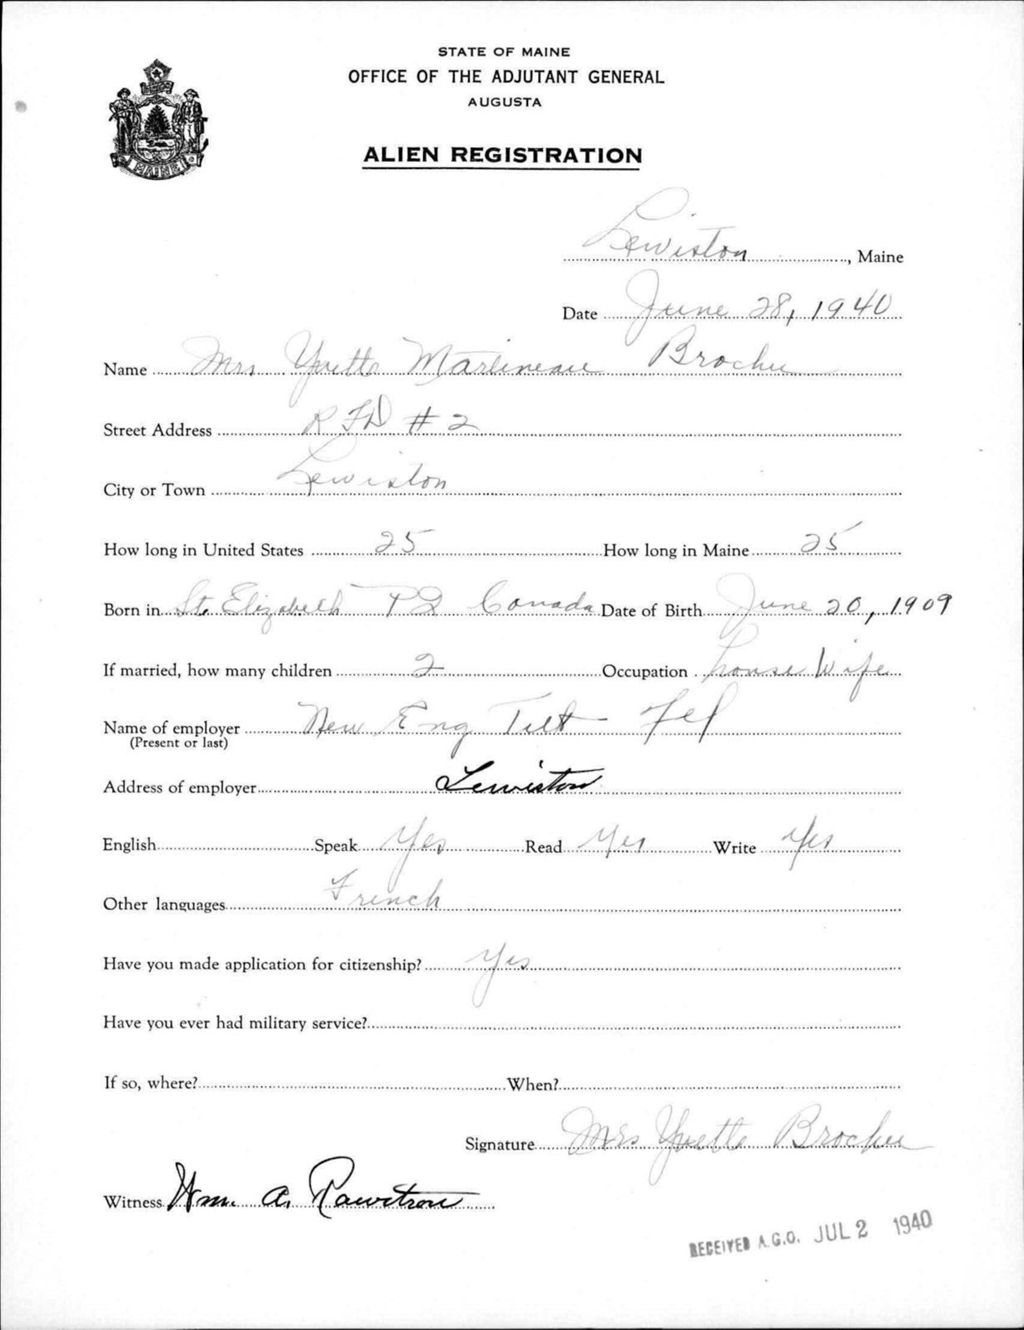 STATE OF MAINE
OFFICE OF THE ADJUTANT GENERAL
AUGUSTA
ALIEN REGISTRATION
MAINE
Lewiston, Maine
Date June 28, 1940
Name Mrs Yvette Martineau Brochu
Street Address RFD #2
City or Town Lewiston
How long in United States 25 How long in Maine 25
Born in St. Elizabeth PQ Canada Date of Birth June 20, 1909
If married, how many children 2 Occupation house Wife
Name of employer New Eng
(Present or last)
Address of employer Lewiston
English Speak Yes Read Yes Write Yes
Other languages French
Have you made application for citizenship? Yes
Have you ever had military service?
If so, where? When?
Signature Mrs Yvette Brochu
Witness Wm. A.
RECEIVED A.G.O. JUL 2 1940